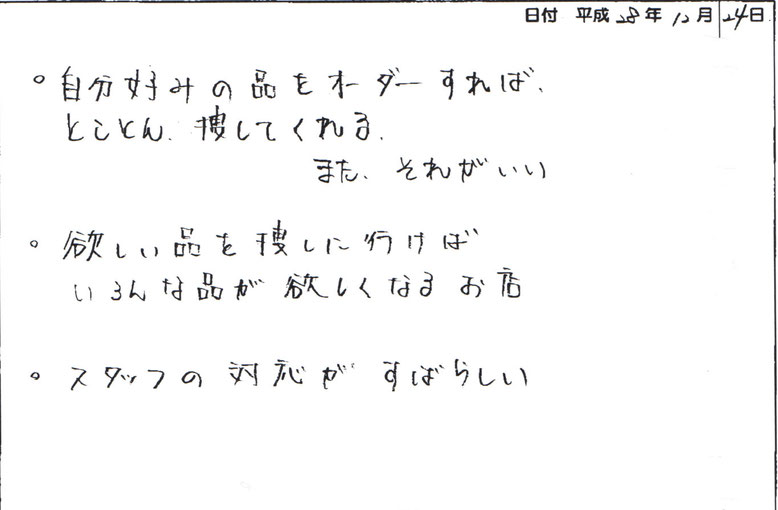 日付 平成 28年 12月 24日
○ 自分好みの品をオーダーすれば、
とことん、捜してくれる、
また、それがいい
○ 欲しい品を捜しに行けば
いろんな品が欲しくなるお店
○ スタッフの対応がすばらしい